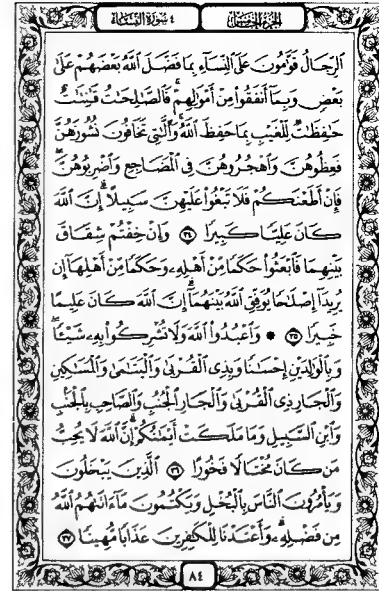 الجزء الخامس
٤ سورة النساء
ٱلرِّجَالُ قَوَّٰمُونَ عَلَى ٱلنِّسَآءِ بِمَا فَضَّلَ ٱللَّهُ بَعْضَهُمْ عَلَىٰ
بَعْضٍ وَبِمَآ أَنفَقُوا۟ مِنْ أَمْوَٰلِهِمْ ۚ فَٱلصَّٰلِحَٰتُ قَٰنِتَٰتٌ
حَٰفِظَٰتٌ لِّلْغَيْبِ بِمَا حَفِظَ ٱللَّهُ ۚ وَٱلَّٰتِى تَخَافُونَ نُشُوزَهُنَّ
فَعِظُوهُنَّ وَٱهْجُرُوهُنَّ فِى ٱلْمَضَاجِعِ وَٱضْرِبُوهُنَّ ۖ
فَإِنْ أَطَعْنَكُمْ فَلَا تَبْغُوا۟ عَلَيْهِنَّ سَبِيلًا ۗ إِنَّ ٱللَّهَ
كَانَ عَلِيًّا كَبِيرًا ٣٤ وَإِنْ خِفْتُمْ شِقَاقَ
بَيْنِهِمَا فَٱبْعَثُوا۟ حَكَمًا مِّنْ أَهْلِهِۦ وَحَكَمًا مِّنْ أَهْلِهَآ إِن
يُرِيدَآ إِصْلَٰحًا يُوَفِّقِ ٱللَّهُ بَيْنَهُمَآ ۗ إِنَّ ٱللَّهَ كَانَ عَلِيمًا
خَبِيرًا ٣٥ ۞ وَٱعْبُدُوا۟ ٱللَّهَ وَلَا تُشْرِكُوا۟ بِهِۦ شَيْـًٔا ۖ
وَبِٱلْوَٰلِدَيْنِ إِحْسَٰنًا وَبِذِى ٱلْقُرْبَىٰ وَٱلْيَتَٰمَىٰ وَٱلْمَسَٰكِينِ
وَٱلْجَارِ ذِى ٱلْقُرْبَىٰ وَٱلْجَارِ ٱلْجُنُبِ وَٱلصَّاحِبِ بِٱلْجَنۢبِ
وَٱبْنِ ٱلسَّبِيلِ وَمَا مَلَكَتْ أَيْمَٰنُكُمْ ۗ إِنَّ ٱللَّهَ لَا يُحِبُّ
مَن كَانَ مُخْتَالًا فَخُورًا ٣٦ ٱلَّذِينَ يَبْخَلُونَ
وَيَأْمُرُونَ ٱلنَّاسَ بِٱلْبُخْلِ وَيَكْتُمُونَ مَآ ءَاتَىٰهُمُ ٱللَّهُ
مِن فَضْلِهِۦ ۗ وَأَعْتَدْنَا لِلْكَٰفِرِينَ عَذَابًا مُّهِينًا ٣٧
٨٤